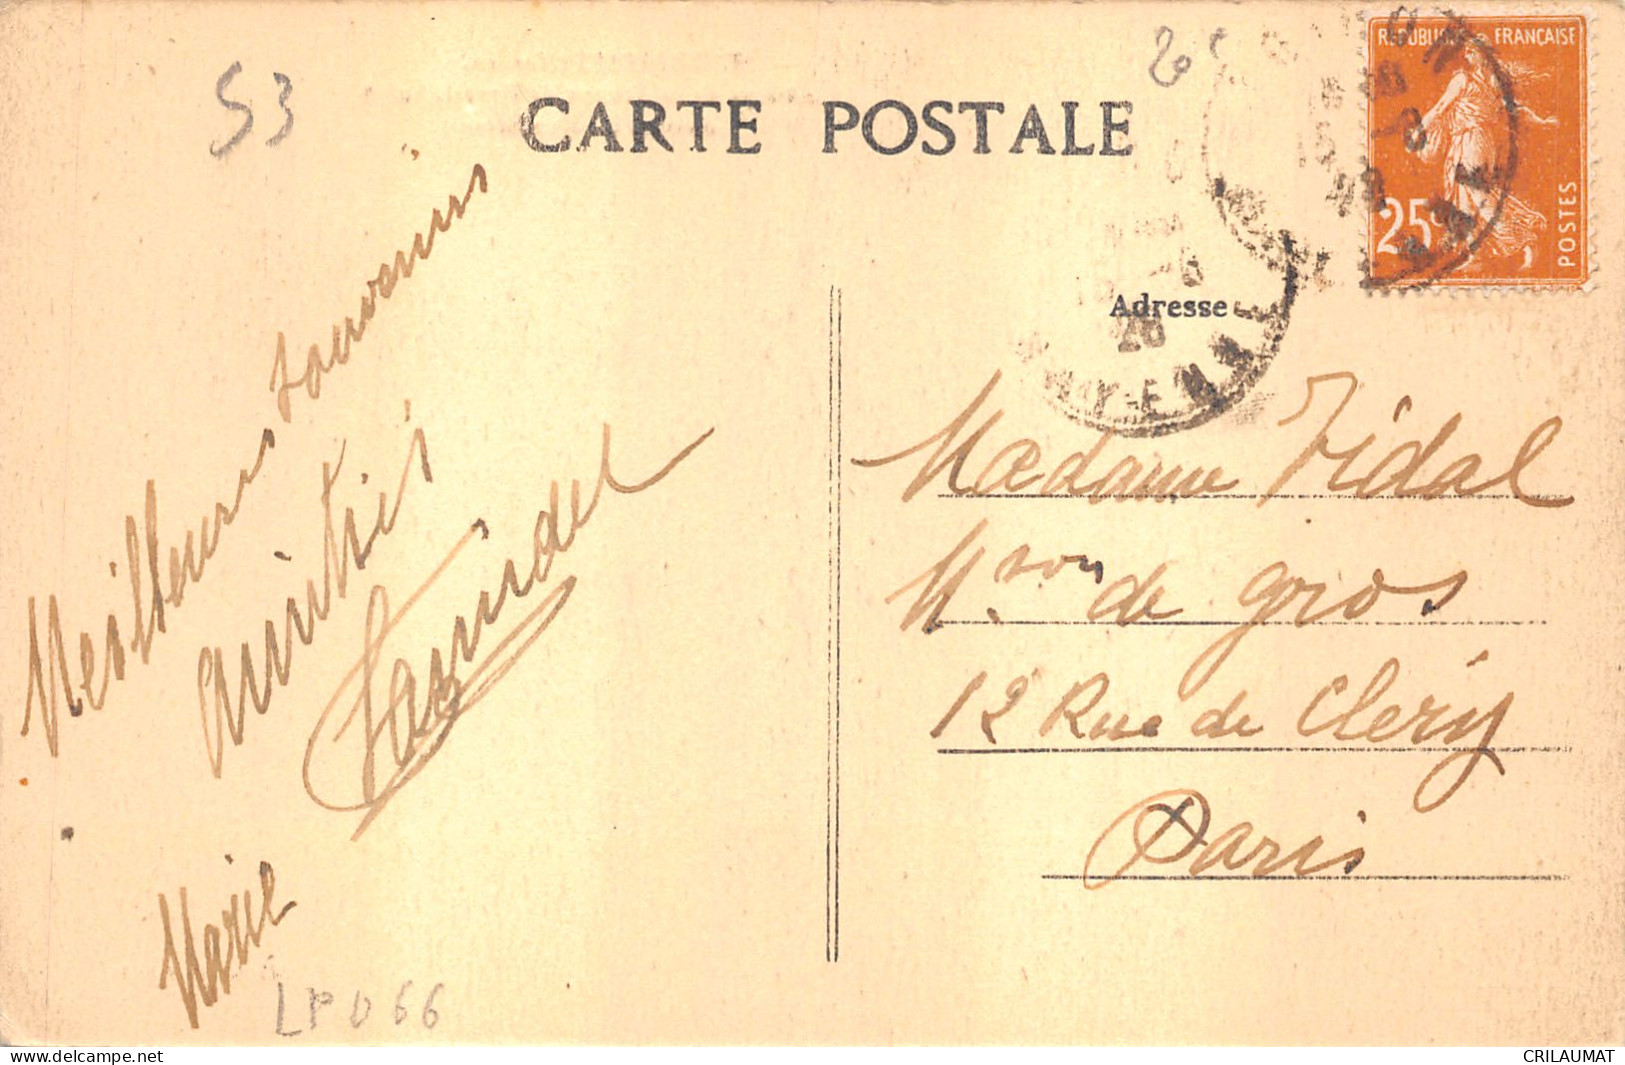 53
20c
CARTE POSTALE
REPUBLIQUE FRANÇAISE
25c
POSTES
28
Adresse
Meilleurs souvenirs
amitiés
Marie
Madame Vidal
Mson de gros
12 Rue de Cléry
Paris
LPD66
www.delcampe.net
CRILAUMAT